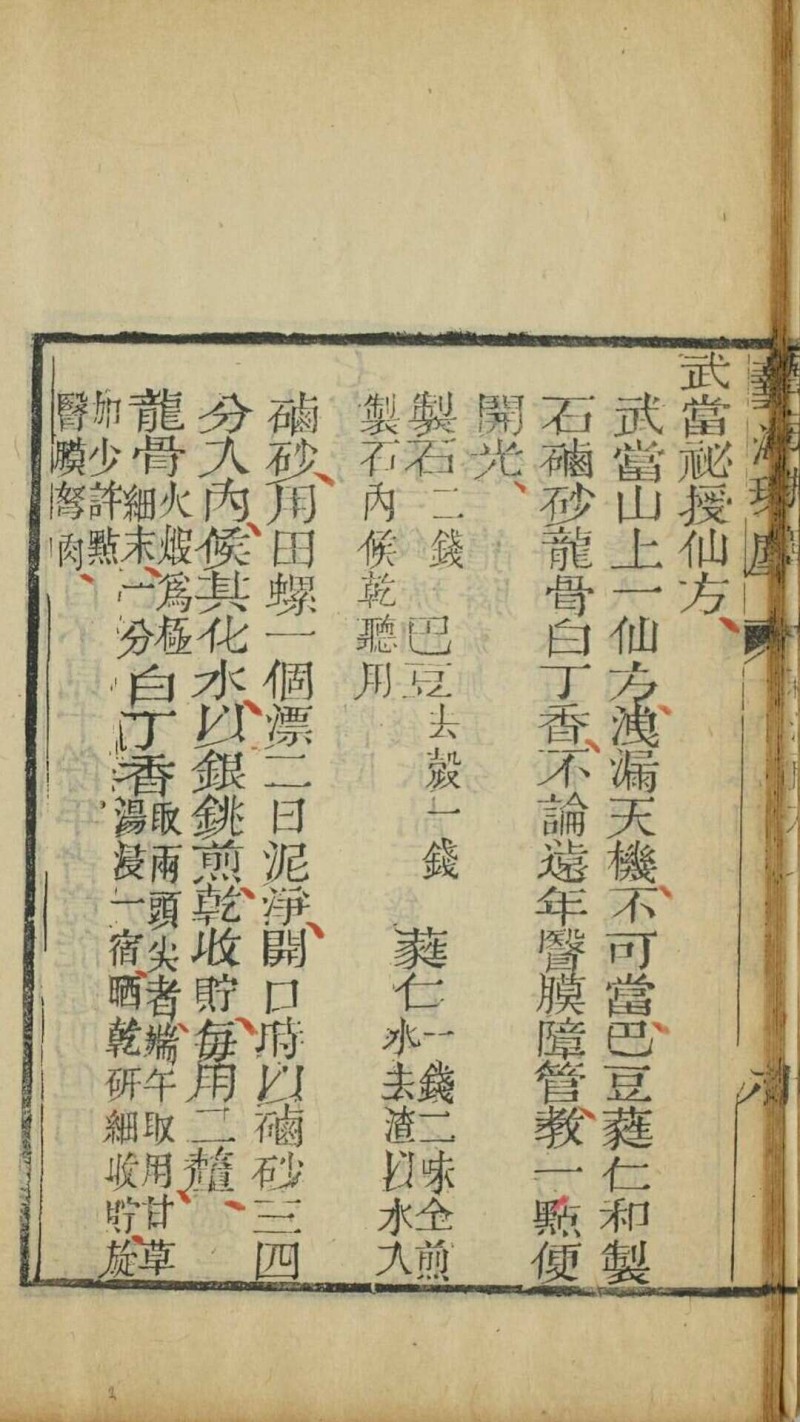 武當祕授仙方
武當山上一仙方洩漏天機不可當巴豆蕤仁和製
石磠砂龍骨白丁香不論遠年瞖膜障管教一㸃便
開光
製石二錢 巴豆去殼一錢 蕤仁一錢二味仝煎
水去渣以水入
製石內候乾聽用
磠砂用田螺一個漂二日泥淨開口時以磠砂三四
分入內候其化水以銀銚煎乾收貯每用二釐
龍骨火煅爲極
細末一分
白丁香取兩頭尖者端午取用甘草
湯浸一宿晒乾研細收貯旋
加少許點
瞖膜努肉